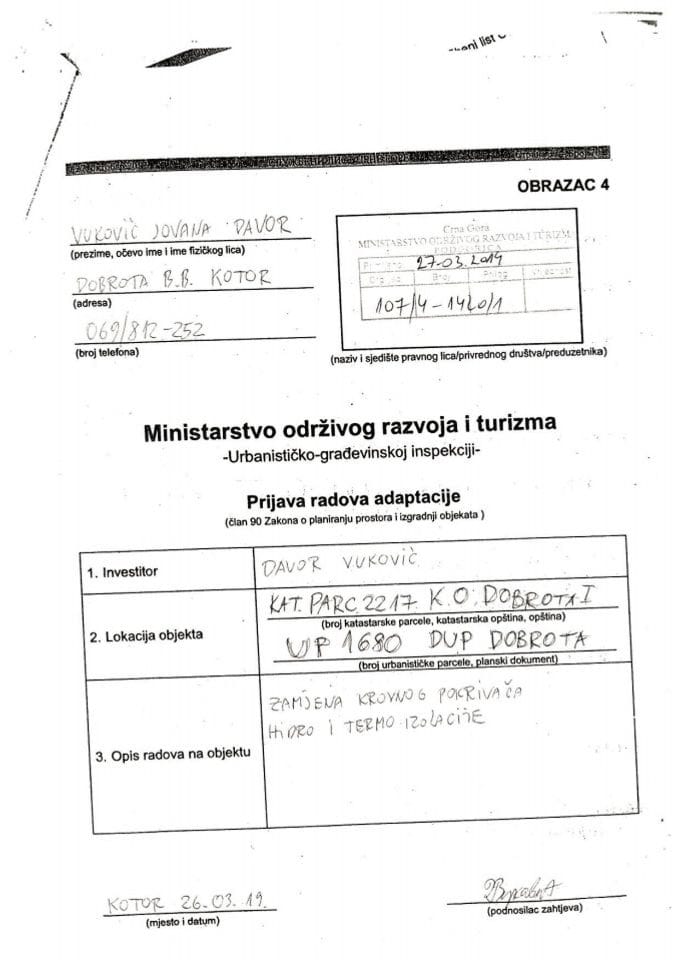 OBRAZAC 4
VUKOVIĆ JOVANA DAVOR
(prezime, očevo ime i ime fizičkog lica)
DOBROTA B.B. KOTOR
(adresa)
069/812-252
(broj telefona)
Crna Gora
MINISTARSTVO ODRŽIVOG RAZVOJA I TURIZMA
PODGORICA
27.03.2014
107/4-1420/1
(naziv i sjedište pravnog lica/privrednog društva/preduzetnika)
Ministarstvo održivog razvoja i turizma
-Urbanističko-građevinskoj inspekciji-
Prijava radova adaptacije
(član 90 Zakona o planiranju prostora i izgradnji objekata )
1. Investitor
DAVOR VUKOVIĆ
2. Lokacija objekta
KAT. PARC 2217. K.O. DOBROTA I
(broj katastarske parcele, katastarska opština, opština)
UP 1680 DUP DOBROTA
(broj urbanističke parcele, planski dokument)
3. Opis radova na objektu
ZAMJENA KROVNOG POKRIVAČA
HIDRO I TERMO IZOLACIJE
KOTOR 26.03.19.
(mjesto i datum)
(podnosilac zahtjeva)